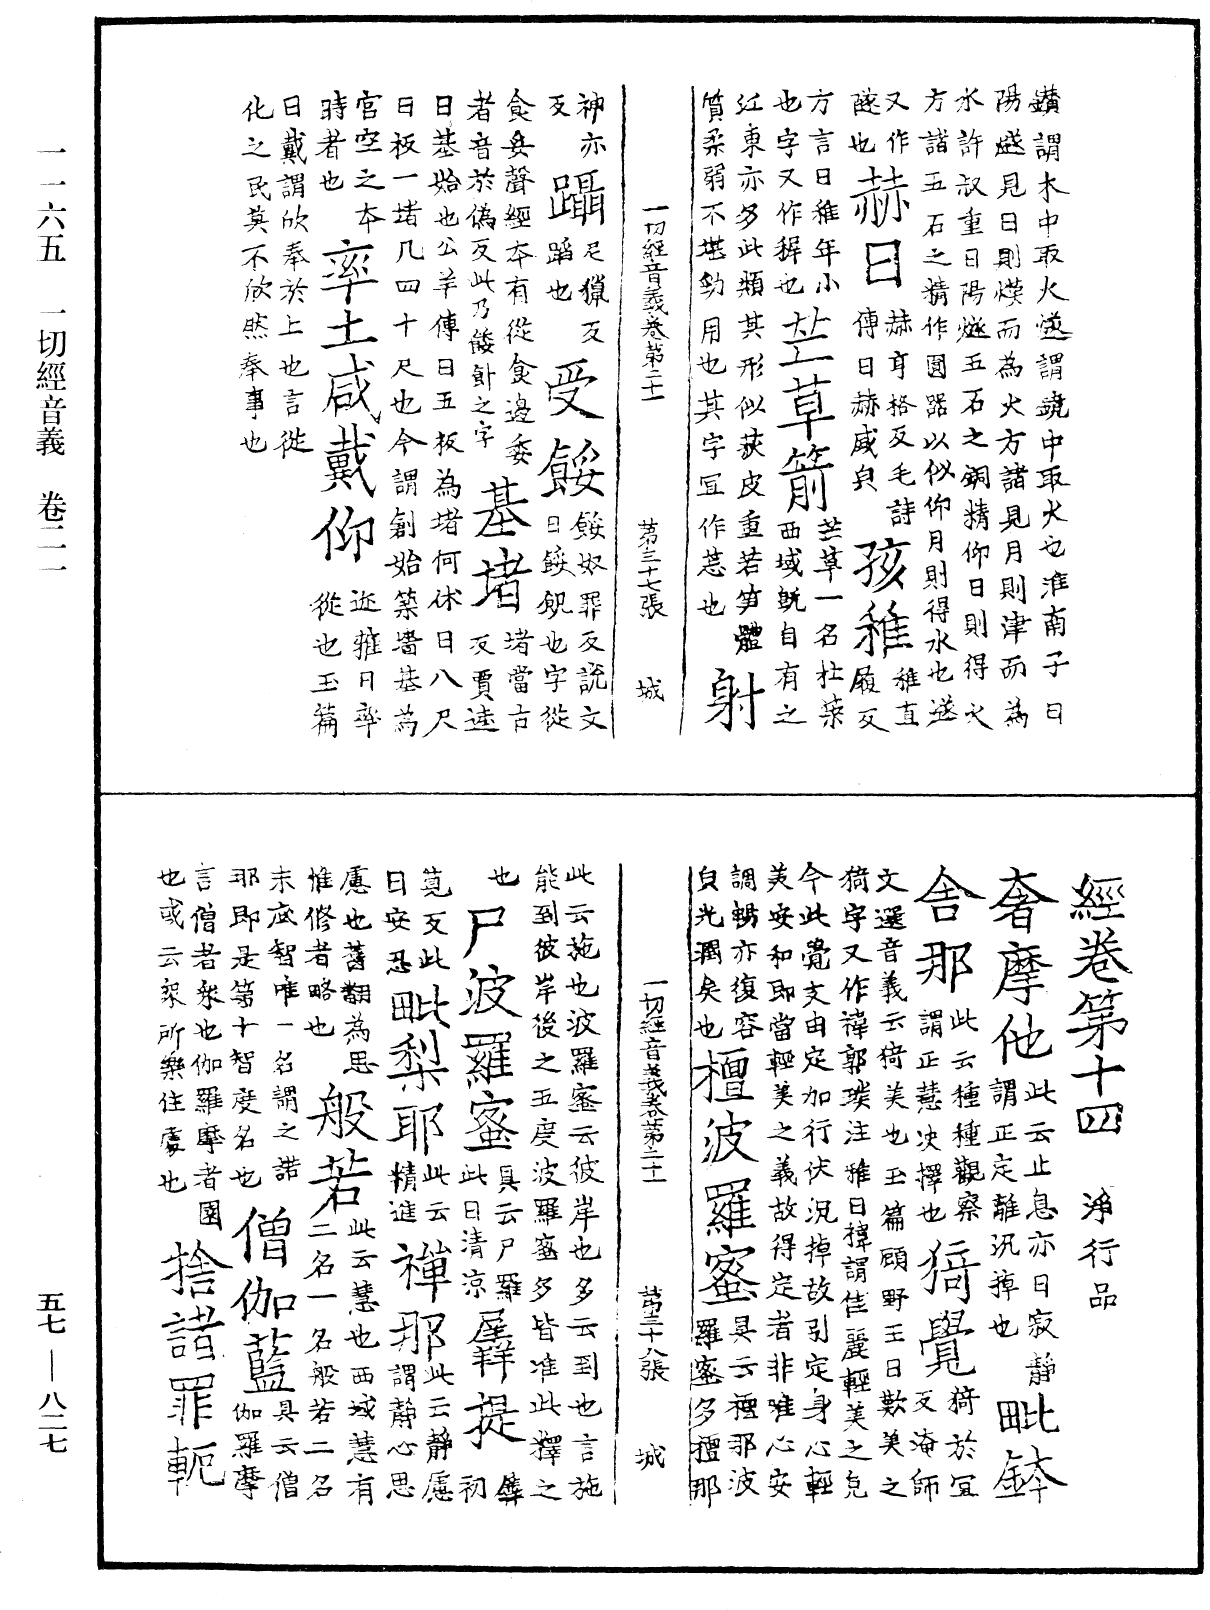 鑽謂木中取火燧謂鏡中取火也淮南子曰
陽燧見日則㸐而為火方諸見月則津而為
水許叔重曰陽燧五石之銅精仰日則得火
方諸五石之精作圓器以似仰月則得水也燧
又作𨽁也 赫日 赫亨格反毛詩傳曰赫盛皃 孩稚 稚直履反
方言曰稚年小也字又作稺也 芒草箭 芒草一名杜榮西域既自有之
江東亦多此類其形似荻皮重若笋體質柔弱不堪勁用也其字冝作䒽也 射
一切經音義卷第二十一 第三十七張 城
神亦反 躡 尼獵反蹈也 受餧 餧奴罪反說文曰餧飢也字從
食妥聲經本有從食邊委者音於偽反此乃餧飤之字 基堵 堵當古反賈逵
曰基始也公羊傳曰五板為堵何休曰八尺
曰板一堵凡四十尺也今謂創始築墻基為
宮室之本時者也 率土咸戴仰 迩雅曰率從也玉篇
曰戴謂欣奉於上也言從
化之民莫不欣然奉事也
經卷第十四 淨行品
奢摩他 此云止息亦曰寂靜謂正定離沉掉也 毗鉢
舍那 此云種種觀察謂正慧决擇也 猗覺 猗於冝反淹師
文選音義云猗美也玉篇顧野王曰歎美之
猗字又作禕郭璞注雅曰禕謂佳麗輕美之皃
今此覺支由定加行伏況掉故引定身心輕
美安和即當輕美之義故得定者非唯心安
調暢亦復容皃光潤矣也 檀波羅蜜 具云檀那波羅蜜多檀那
一切經音義卷第二十一 第三十八張 城
此云施也波羅蜜云彼岸也多云到也言施
能到彼岸後之五度波羅蜜多皆准此釋之
也 尸波羅蜜 具云尸羅此曰清涼 羼提 羼初
莧反此曰安忍 毗梨耶 此云精進 禪那 此云靜慮謂靜心思
慮也舊翻為思惟修者略也 般若 此云慧也西域慧有二名一名般若二名
末底智唯一名謂之諾
耶即是第十智度名也 僧伽藍 具云僧伽羅摩
言僧者衆也伽羅摩者園也或云衆所樂住處也 捨諸罪軛
一一六五 一切經音義 卷二一
五七—八二七